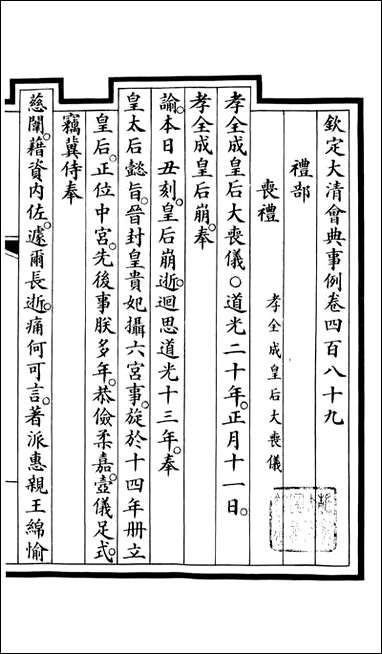 欽定大清會典事例卷四百八十九
禮部
喪禮 孝全成皇后大喪儀
孝全成皇后大喪儀○道光二十年。正月十一日。
孝全成皇后崩。奉
諭。本日丑刻。皇后崩逝。迴思道光十三年。奉
皇太后懿旨。晉封皇貴妃攝六宮事。旋於十四年册立
皇后。正位中宮。先後事朕多年。恭儉柔嘉。壼儀足式。
竊冀侍奉
慈闈。藉資内佐。遽爾長逝。痛何可言。著派惠親王綿愉